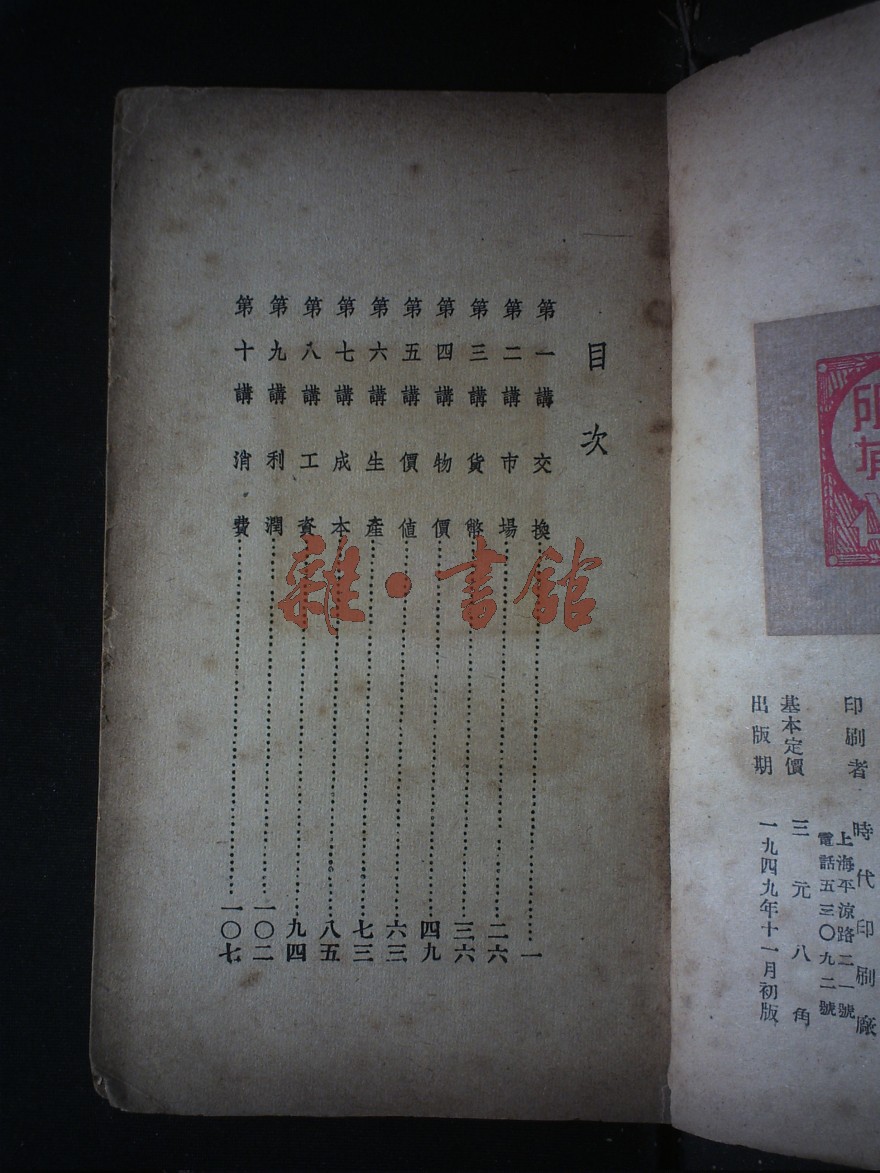 目次
第一講 交換……一
第二講 市場……二六
第三講 貨幣……三六
第四講 物價……四九
第五講 價值……六三
第六講 生產……七三
第七講 成本……八五
第八講 工資……九四
第九講 利潤……一〇二
第十講 消費……一〇七
雜·書館
印刷者 時代印刷廠
上海平涼路二一號
電話五三〇九二號
基本定價 三元八角
出版期 一九四九年十一月初版